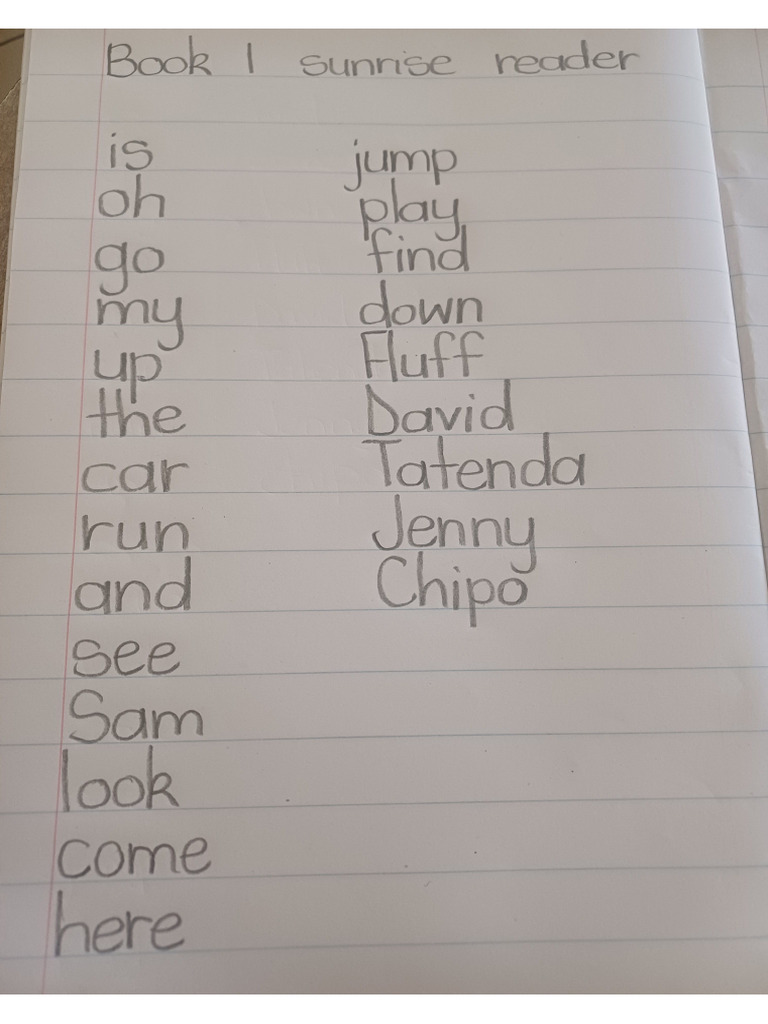 Book 1 sunrise reader
is
oh
go
my
up
the
car
run
and
see
Sam
look
come
here
jump
play
find
down
Fluff
David
Tatenda
Jenny
Chipo